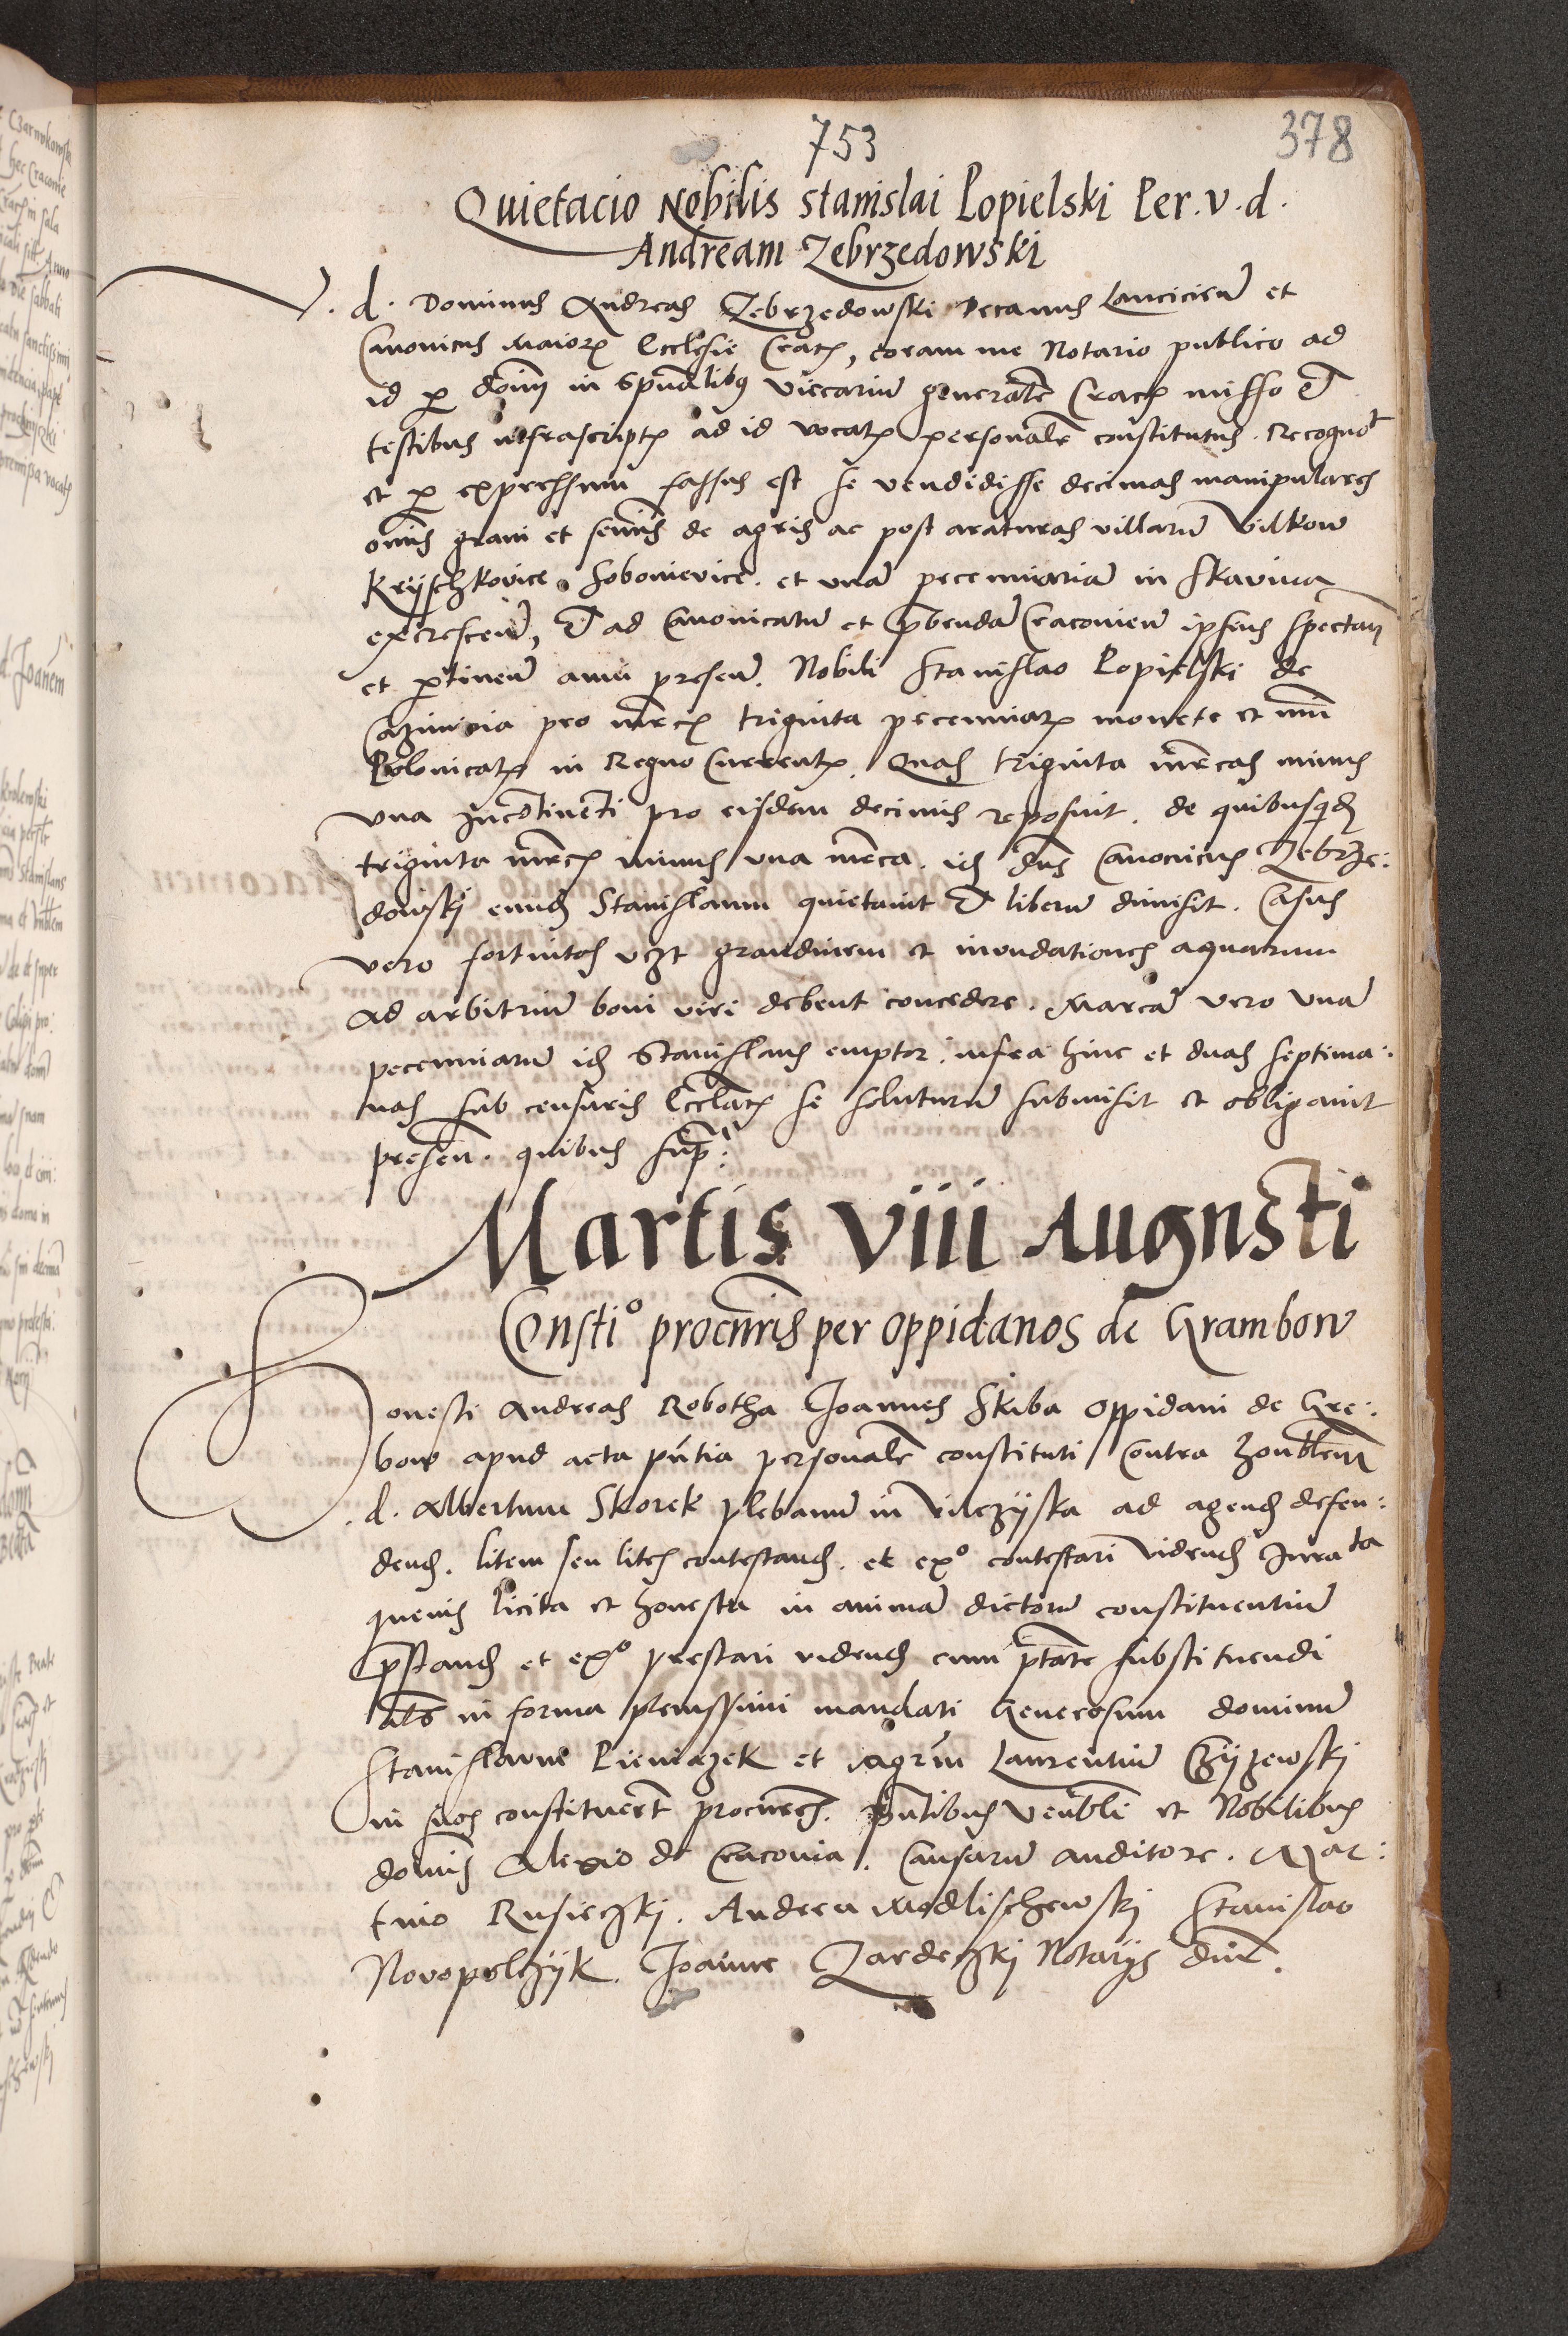 753
378
Quietacio Nobilis Stanislai Popielski Per. v. d.
Andream Zebrzedowski
V. d. Dominus Andreas Zebrzedowski Decanus Lancicien et
Canonicus Maioris Ecclesie Crac, coram me Notario publico ad
id per dnm in Spualibus vicarium generalem Crac misso et
testibus infrascriptis ad id vocatis personalr constitutus. Recognot
et per expressum fassus est se vendidisse decimas manipulares
omnis grani et seminis de agris ac post araturas villarum Vilkow
Krijschkovice Sobonievice. et unam pecuniariam in Skavina
excrescen, et ad Canonicatum et prebendam Cracovien ipsius spectan
et pertinen anni presen. Nobili Stanislao Popielski de
pro mrcis triginta pecuniarum monete et nui
Polonicalis in Regno Currentis. Quas triginta mrcas minus
una Incontinenti pro eisdem decimis reposuit. de quibusquidem
triginta mrcis minus una mrca. idem dns Canonicus Zebrze:
dowskj eundem Stanislaum quietavit et liberum dimisit. Casus
vero fortuitos vzt grandinem et inundationes aquarum
ad arbitrium boni viri debent concedere. Marcam vero unam
pecuniarum idem Stanislaus emptor infra hinc et duas septima:
nas sub censuris Ecclasticis se soluturum submisit et obligavit
presen. quibus supra.
Martis viii Augusti
Constio procuris per oppidanos de Grambow
Honesti Andreas Robotha Joannes Skiba oppidani de Gre:
bow apud acta pntia personalr constituti Contra honblem
d. Albertum Skorek plebanum in Vilczijska ad agend defen:
dend. litem seu lites contestand. et exo contestari vidend Jurata
quevis licita et honesta in animam dictorum constituentium
prestand et exo prestari vidend cum ptate substituendi
als in forma plenissimi mandati Generosum dominum
Stanislaum Pieniazek et magrm Laurentium Czijzewskj
in suos constituert procures. pntibus venbli et Nobilibus
dominis Alexio de Cracovia. Causarum auditore. Mar:
tino Rusieczkj. Andrea Modlischewskj Stanislao
Novopolczijk. Joanne Zardeczkj Notarijs